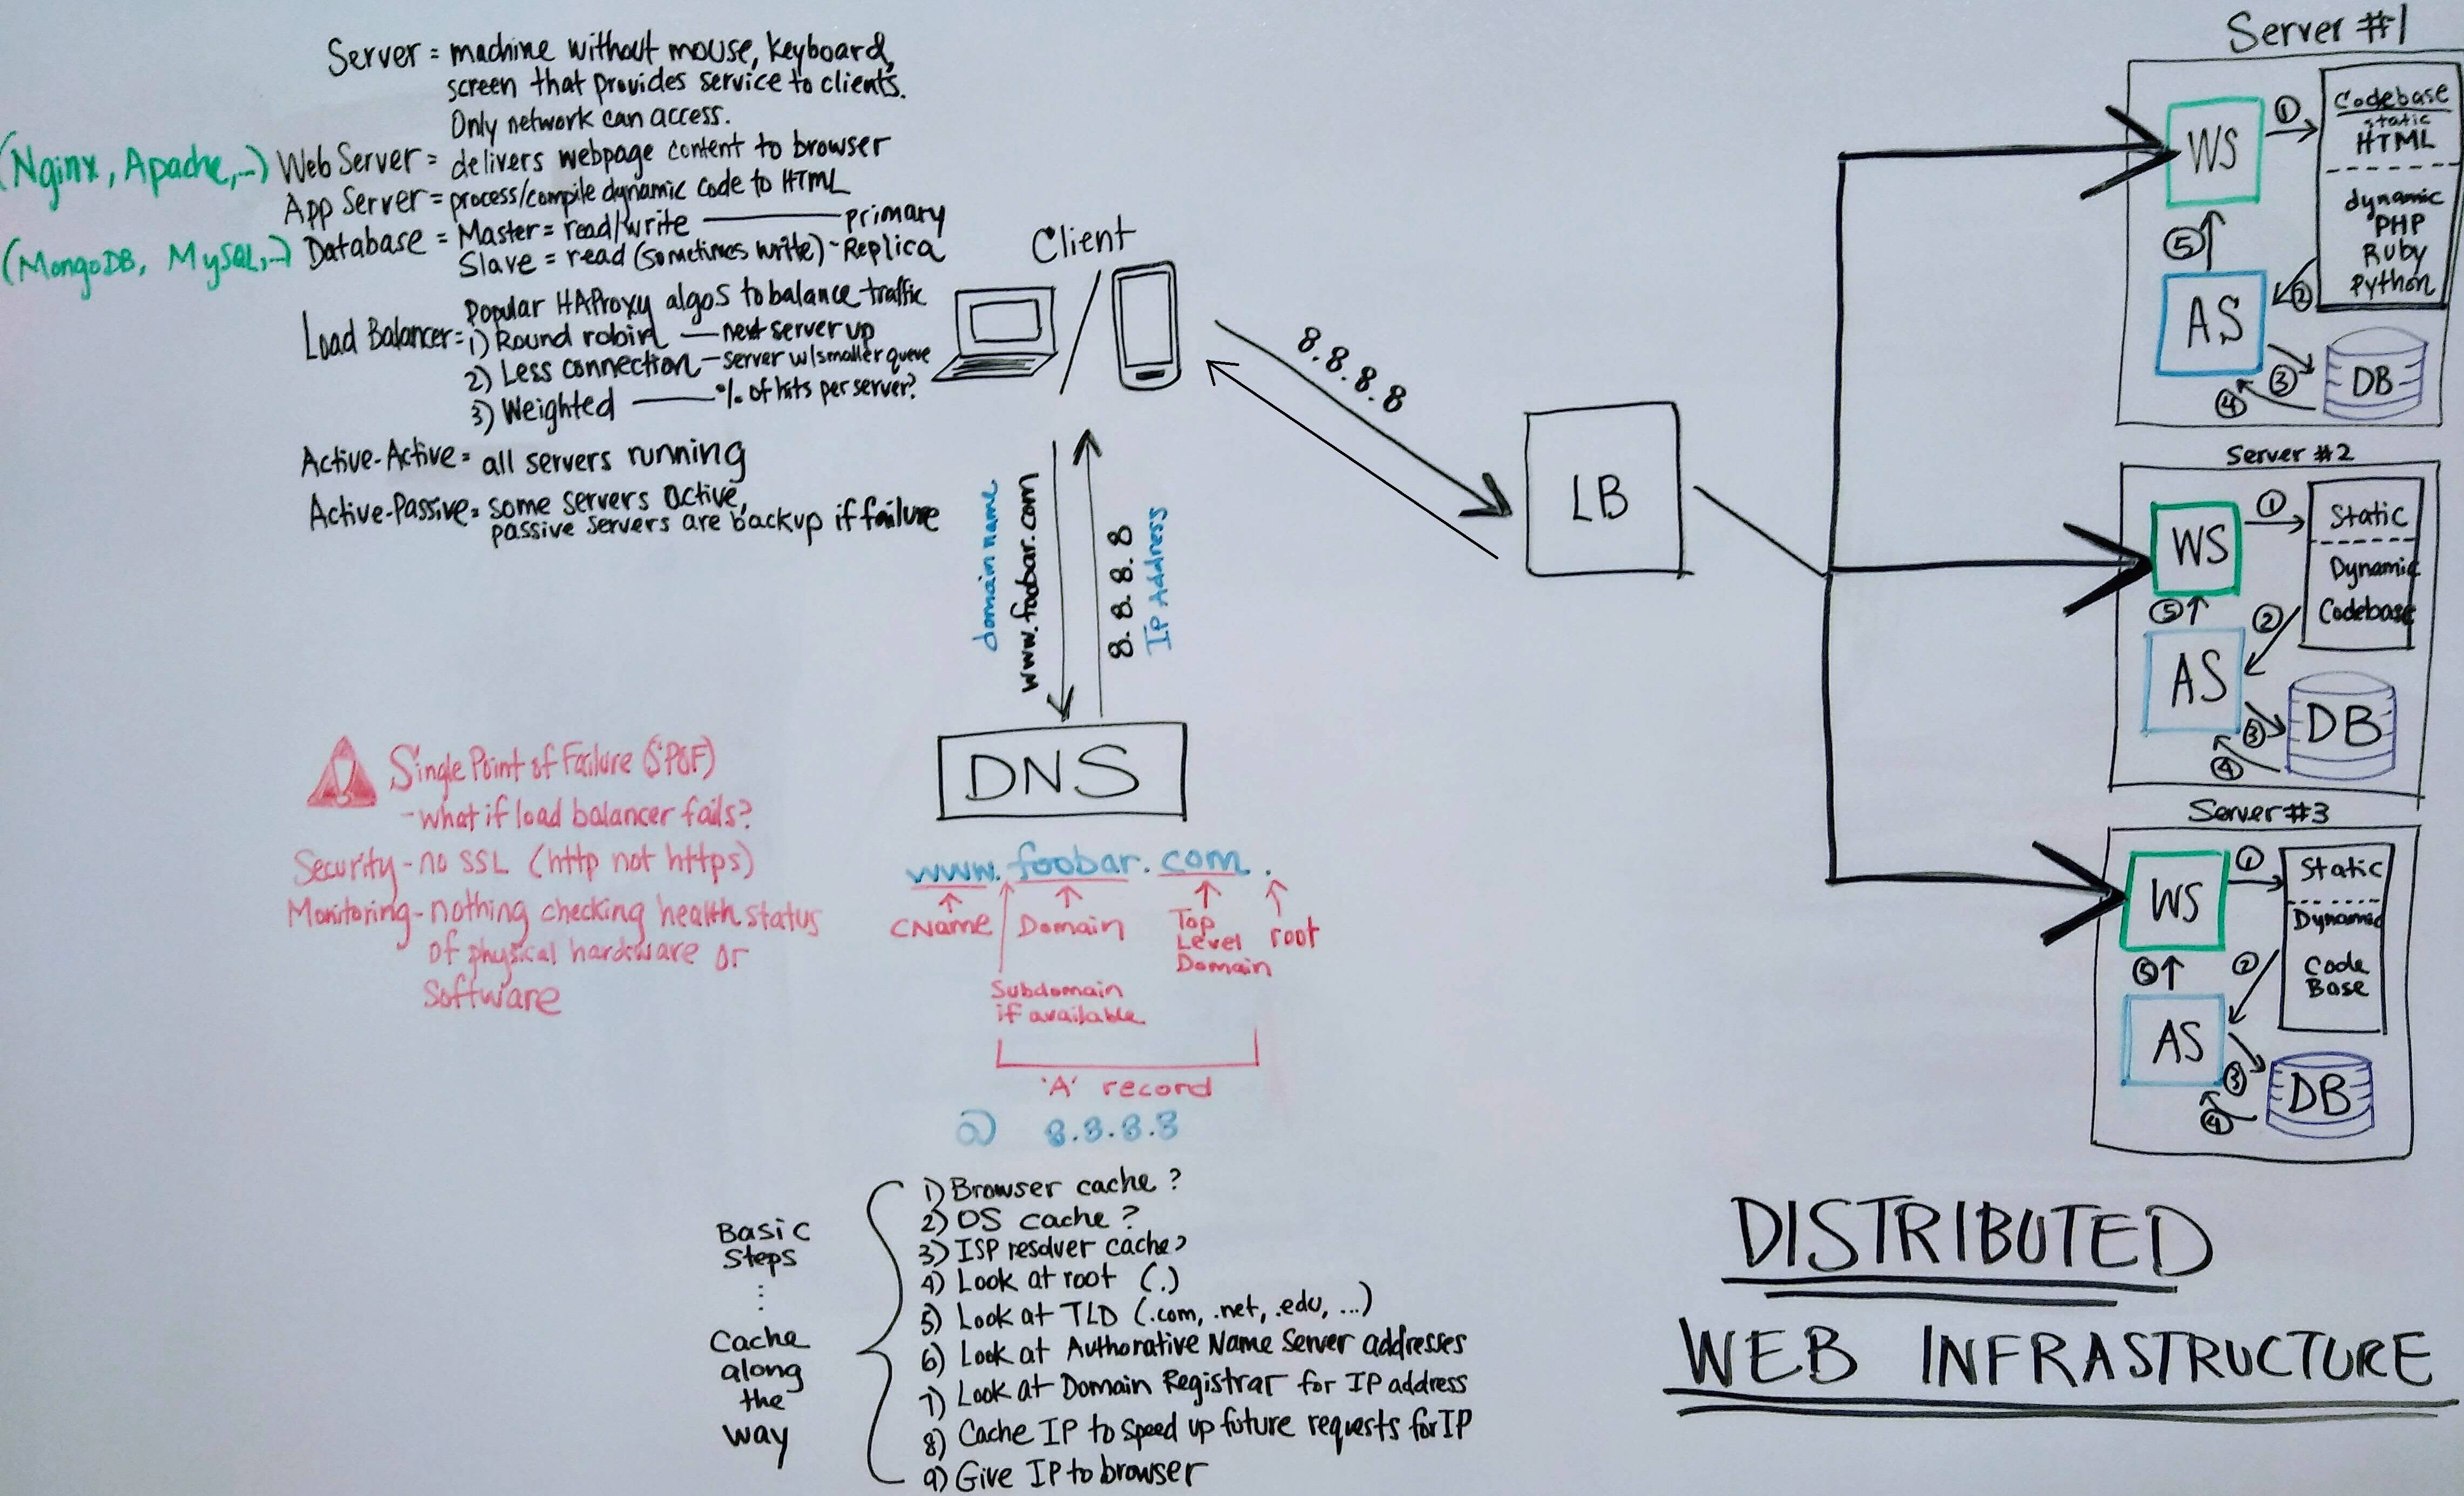 Server = machine without mouse, keyboard,
screen that provides service to clients.
Only network can access.
(Nginx, Apache,...) Web Server = delivers webpage content to browser
App Server = process/compile dynamic code to HTML
(MongoDB, MySQL,...) Database = Master = read/write — primary
Slave = read (sometimes write) - Replica
Popular HAProxy algos to balance traffic
Load Balancer = 1) Round robin — next server up
2) Less connection — server w/smaller queue
3) Weighted — % of hits per server?
Active-Active = all servers running
Active-Passive = some servers active,
passive servers are backup if failure
Client
8.8.8.8
domain name
www.foobar.com
8.8.8.8
IP Address
DNS
LB
Single Point of Failure (SPOF)
- what if load balancer fails?
Security - no SSL (http not https)
Monitoring - nothing checking health status
of physical hardware or
Software
www.foobar.com.
CName
Domain
Top
Level
Domain
root
Subdomain
if available
'A' record
8.8.8.8
Basic
Steps
...
Cache
along
the
way
1) Browser cache?
2) OS cache?
3) ISP resolver cache?
4) Look at root (.)
5) Look at TLD (.com, .net, .edu, ...)
6) Look at Authorative Name Server addresses
7) Look at Domain Registrar for IP address
8) Cache IP to speed up future requests for IP
9) Give IP to browser
Server #1
WS
1
Codebase
static
HTML
dynamic
PHP
Ruby
Python
5
2
AS
3
4
DB
Server #2
WS
1
Static
Dynamic
Codebase
5
2
AS
3
4
DB
Server #3
WS
1
Static
Dynamic
Code
Base
5
2
AS
3
4
DB
DISTRIBUTED
WEB INFRASTRUCTURE